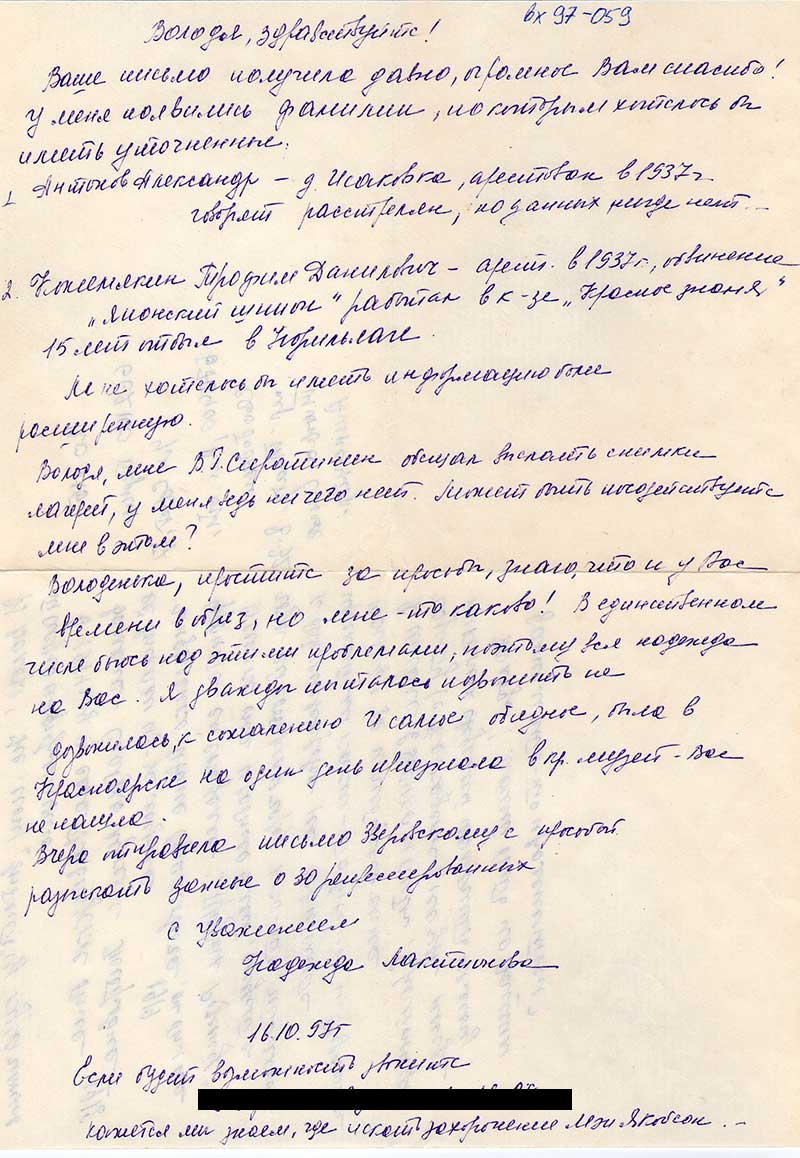 вх 97-059
Володя, здравствуйте!
Ваше письмо получила давно, огромное Вам спасибо!
У меня появились фамилии, по которым хотелось бы
иметь уточнение.
1. Антонов Александр – д. Исаковка, арестован в 1937 г
говорят расстрелян, но данных нигде нет...
2. Кожемякин Трофим Данилович – арест. в 1937 г., обвинение
„Японский шпион" работал в к-зе „Красное знамя"
15 лет отбыл в Норильлаге.
Мне хотелось бы иметь информацию более
расширенную.
Володя, мне В.Г. Сиротинин обещал выслать снимки
лагерей, у меня ведь ничего нет. Может быть посодействуете
мне в этом?
Володенька, простите за просьбы, знаю, что и у Вас
времени в обрез, но мне-то каково! В единственном
числе бьюсь над этими проблемами, поэтому вся надежда
на Вас. Я дважды пыталась позвонить не
дозвонилась, к сожалению и самое обидное, была в
Красноярске на один день приезжала в кр. музей – Вас
не нашла.
Вчера отправила письмо Зверовскому с просьбой
разыскать данные о 30 репрессированных
С уважением
Надежда Лактюнова
16.10.97г
Если будет возможность звоните
кажется мы знаем, где искать захоронение Мэи Якобсон...